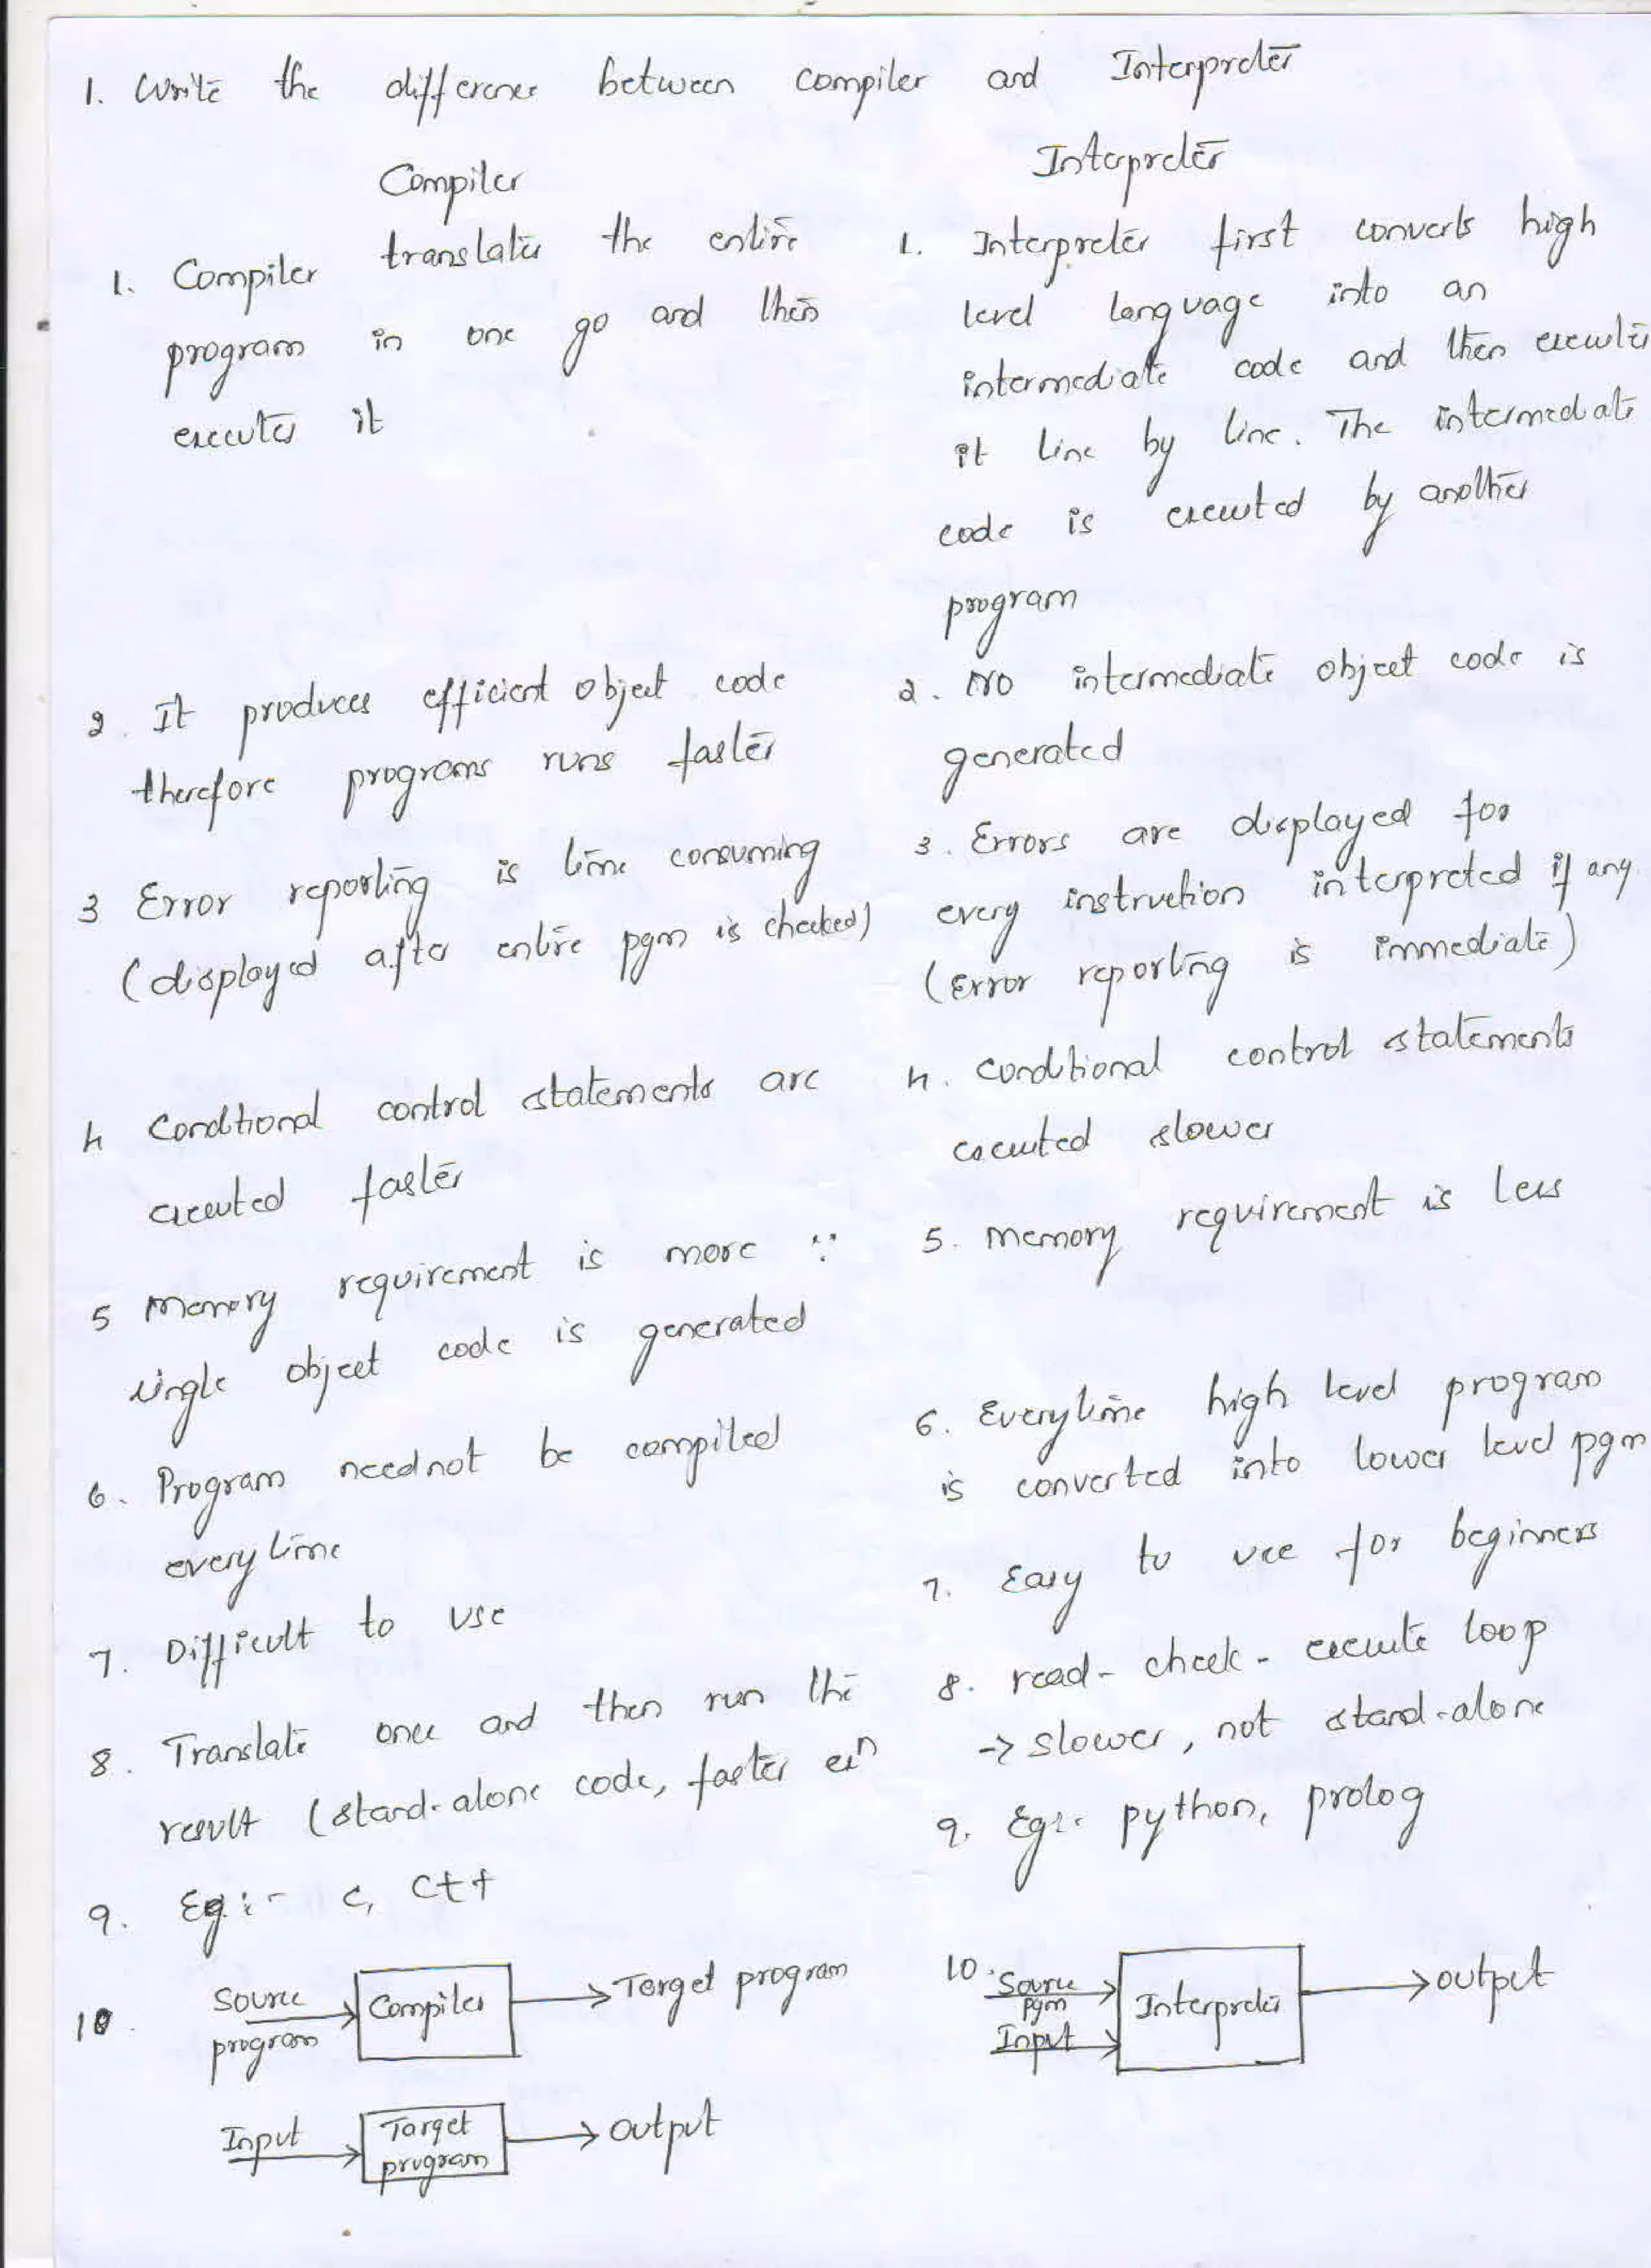 1. Write the difference between compiler and Interpreter
Compiler
1. Compiler translates the entire
program in one go and then
executes it
2. It produces efficient object code
therefore programs runs faster
3 Error reporting is time consuming
(displayed after entire pgm is checked)
4 Conditional control statements are
executed faster
5 Memory requirement is more ∵
single object code is generated
6. Program neednot be compiled
everytime
7. Difficult to use
8. Translate once and then run the
result (stand-alone code, faster exn
9. Eg:- c, C++
10. Source program → Compiler → Target program
Input → Target program → output
Interpreter
1. Interpreter first converts high
level language into an
intermediate code and then executes
it line by line. The intermediate
code is executed by another
program
2. No intermediate object code is
generated
3. Errors are displayed for
every instruction interpreted if any.
(Error reporting is immediate)
4. conditional control statements
executed slower
5. memory requirement is less
6. Everytime high level program
is converted into lower level pgm
7. Easy to use for beginners
8. read- check- execute loop
-> slower, not stand-alone
9. Eg:- python, prolog
10. Source pgm → Interpreter → output
Input